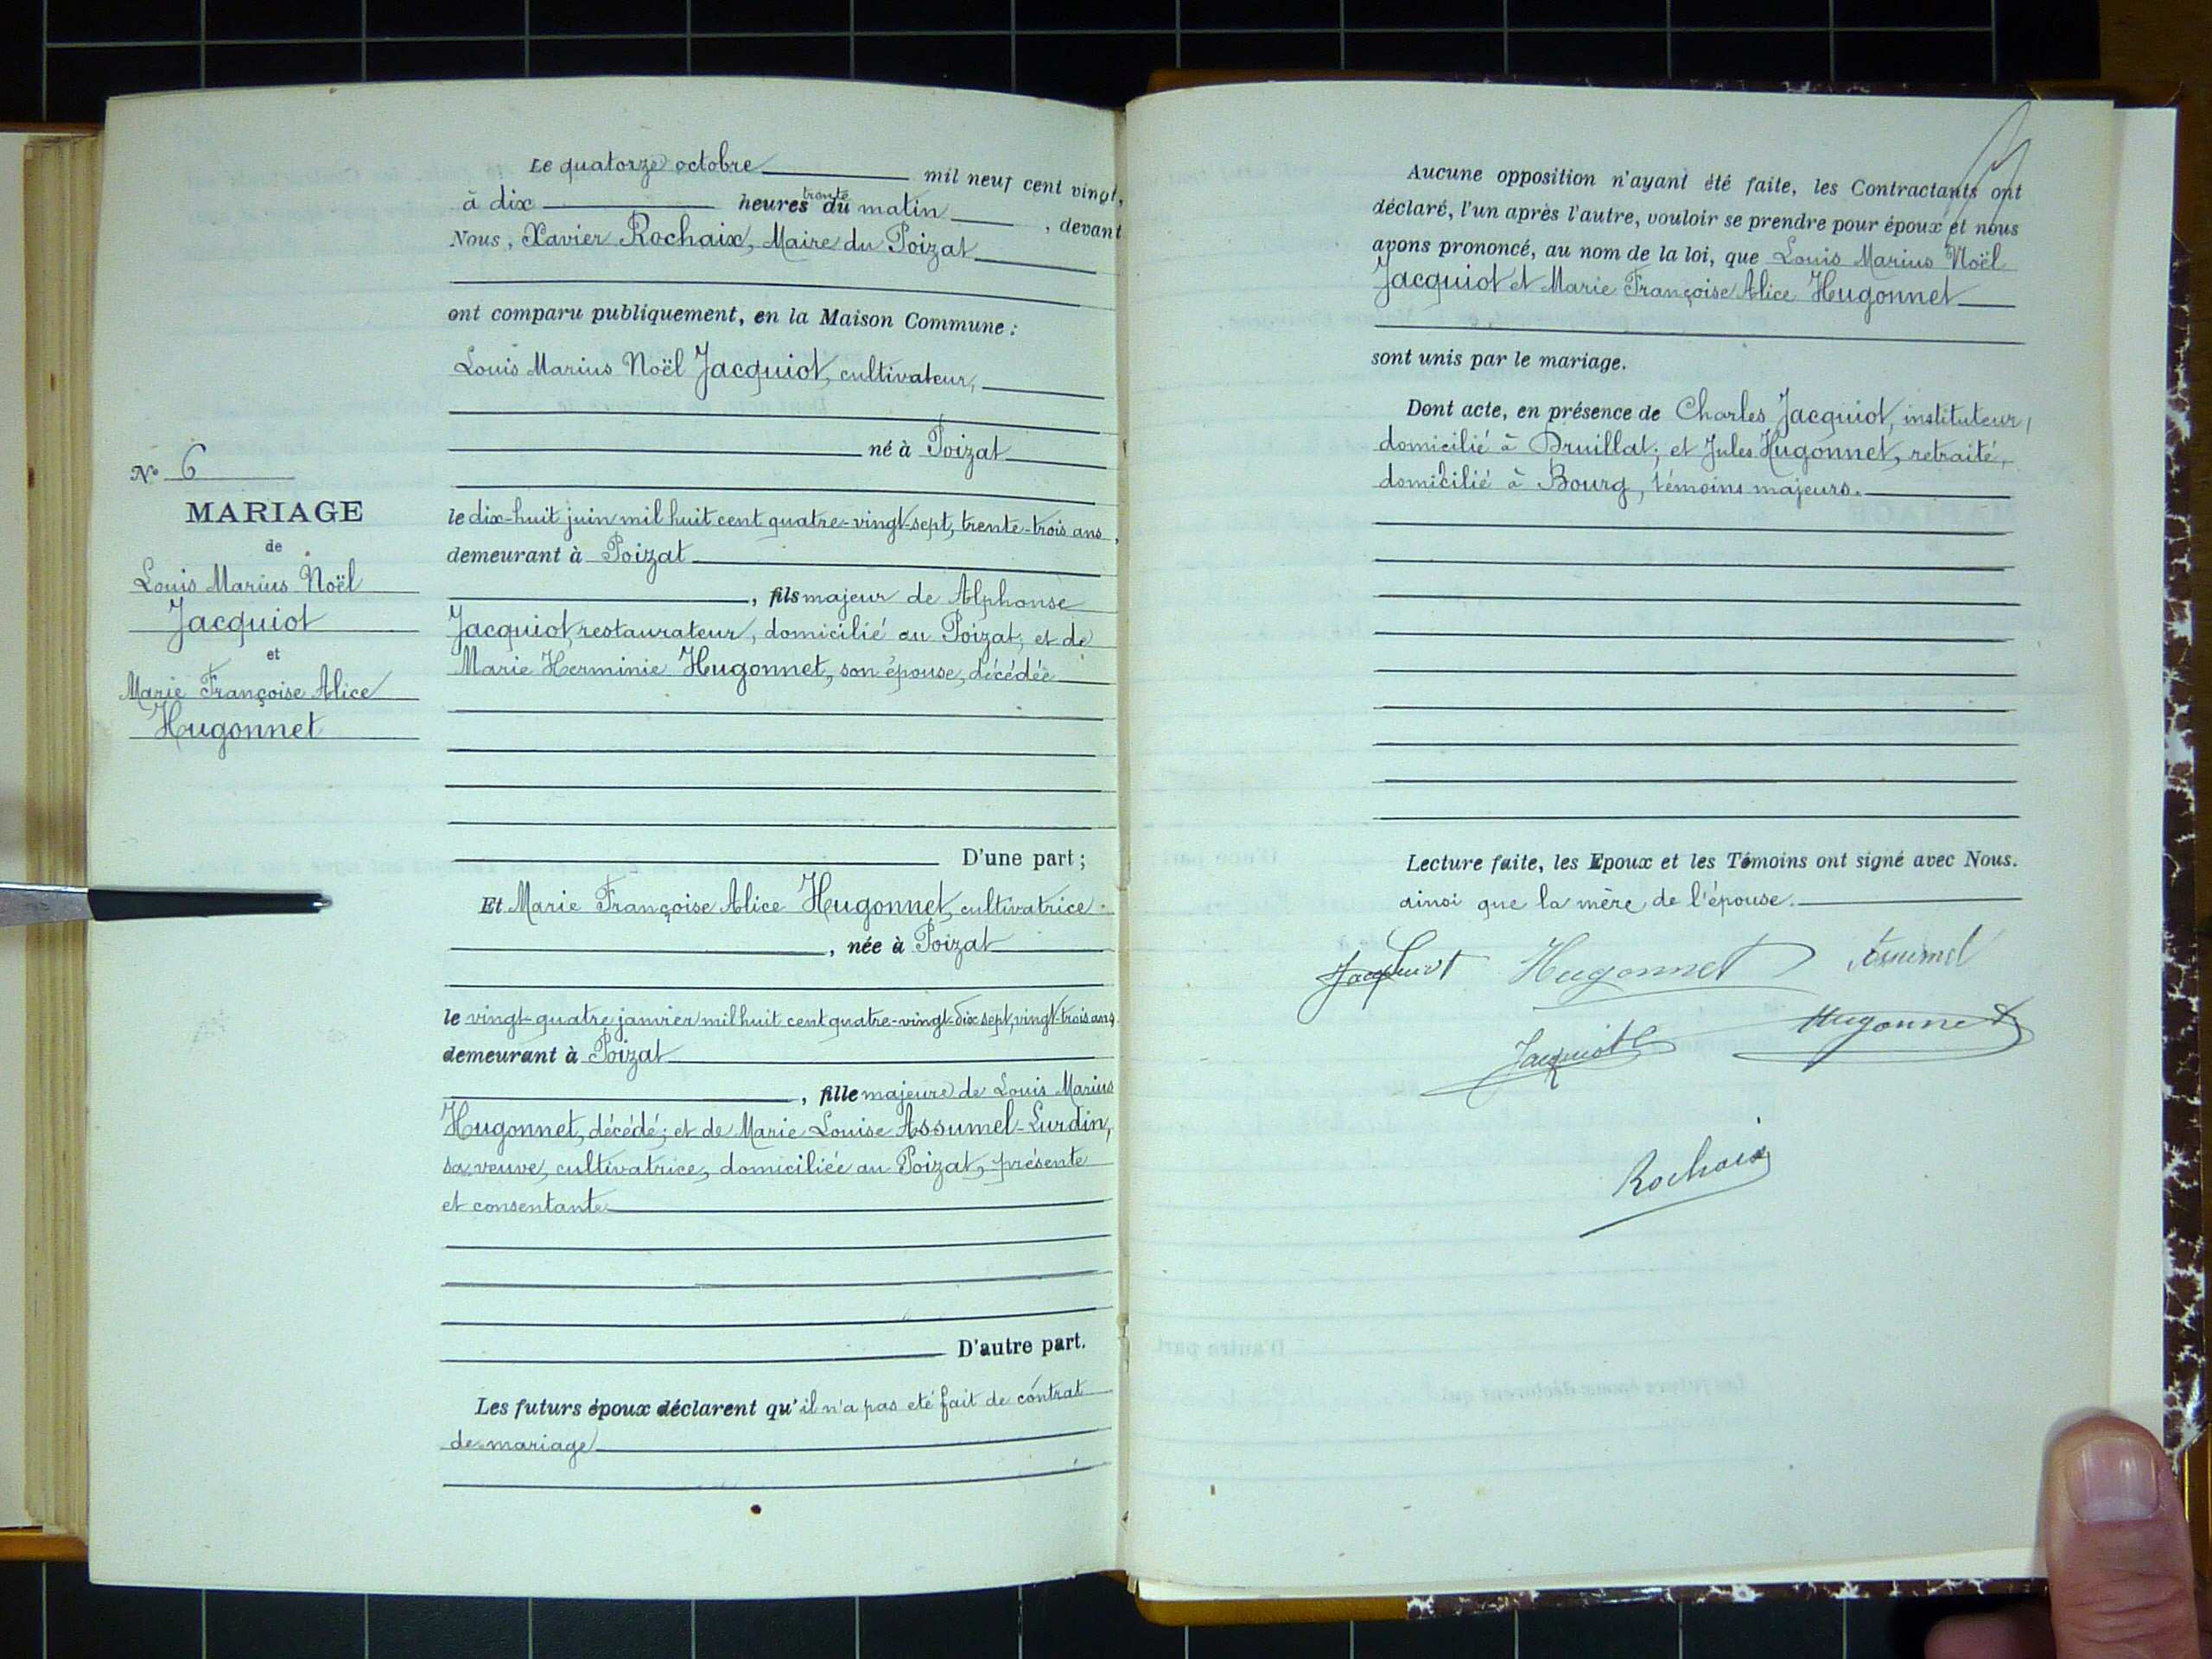 Nº 6
MARIAGE
de
Louis Marius Noël
Jacquiot
et
Marie Françoise Alice
Hugonnet
Le quatorze octobre mil neuf cent vingt,
à dix heures trente du matin, devant
Nous, Xavier Rochaix, Maire du Poizat
ont comparu publiquement, en la Maison Commune :
Louis Marius Noël Jacquiot, cultivateur,
né à Poizat
le dix-huit juin mil huit cent quatre-vingt-sept, trente-trois ans,
demeurant à Poizat
, fils majeur de Alphonse
Jacquiot, restaurateur, domicilié au Poizat; et de
Marie Herminie Hugonnet, son épouse, décédée
D'une part ;
Et Marie Françoise Alice Hugonnet, cultivatrice
, née à Poizat
le vingt-quatre janvier mil huit cent quatre-vingt-dix sept, vingt-trois ans
demeurant à Poizat
, fille majeure de Louis Marius
Hugonnet, décédé; et de Marie Louise Assumel-Lurdin,
sa veuve, cultivatrice, domiciliée au Poizat, présente
et consentante
D'autre part.
Les futurs époux déclarent qu'il n'a pas été fait de contrat
de mariage
Aucune opposition n'ayant été faite, les Contractants ont
déclaré, l'un après l'autre, vouloir se prendre pour époux et nous
avons prononcé, au nom de la loi, que Louis Marius Noël
Jacquiot et Marie Françoise Alice Hugonnet
sont unis par le mariage.
Dont acte, en présence de Charles Jacquiot, instituteur,
domicilié à Druillat; et Jules Hugonnet, retraité,
domicilié à Bourg, témoins majeurs.
Lecture faite, les Epoux et les Témoins ont signé avec Nous.
ainsi que la mère de l'épouse.
Jacquiot Hugonnet Assumel
Jacquiot Hugonnet
Rochaix